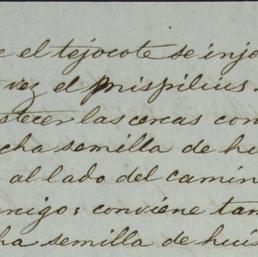 e el tejocote se inje
vez el mispilius.
stecer las cercas con
cha semilla de hu
al lado del camin
migo; conviene tam
ha semilla de huis